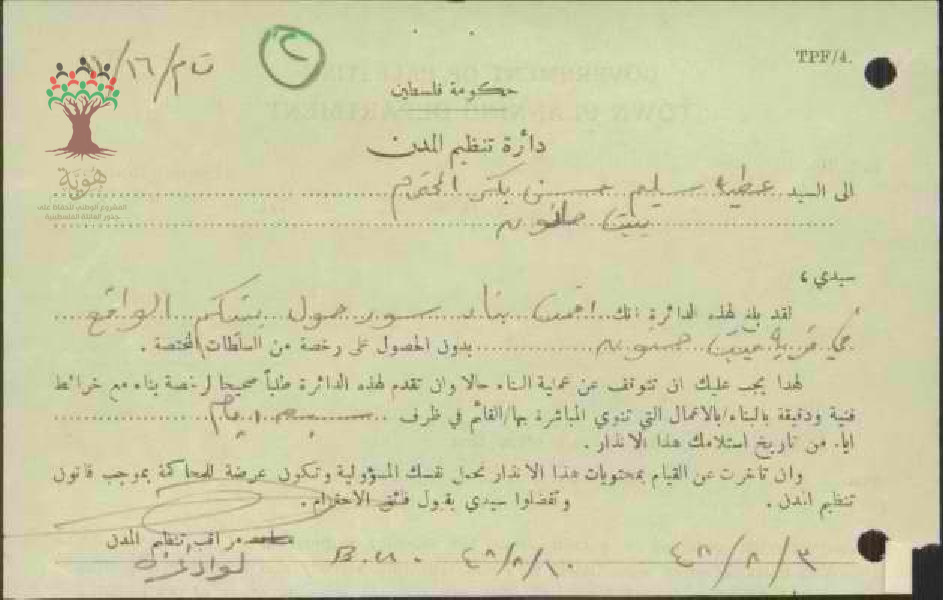 TPF/4.
٢
حكومة فلسطين
دائرة تنظيم المدن
هَويَّة
المشروع الوطني للحفاظ على
جذور العائلة الفلسطينية
الى السيد عطيه سليم حسين بكر المحترم
بيت حانون
سيدي ،
لقد بلغ لهذه الدائرة انك اقمت بناء سور حول بيتكم الواقع
في قرية بيت حانون بدون الحصول على رخصة من السلطات المختصة .
لهذا يجب عليك ان تتوقف عن عملية البناء حالا وان تقدم لهذه الدائرة طلباً صحيحاً لرخصة بناء مع خرائط
فنية ودقيقة بالبناء/بالاعمال التي تنوي المباشرة بها/القائم في ظرف سبعة ايام
ايام من تاريخ استلامك هذا الانذار .
وان تأخرت عن القيام بمحتويات هذا الانذار تحمل نفسك المسؤولية وتكون عرضة للمحاكمة بموجب قانون
تنظيم المدن . وتفضلوا سيدي بقبول فائق الاحترام .
مراقب تنظيم المدن
لواء غزة
٤٨/٨/١٠
٤٨/٨/٣